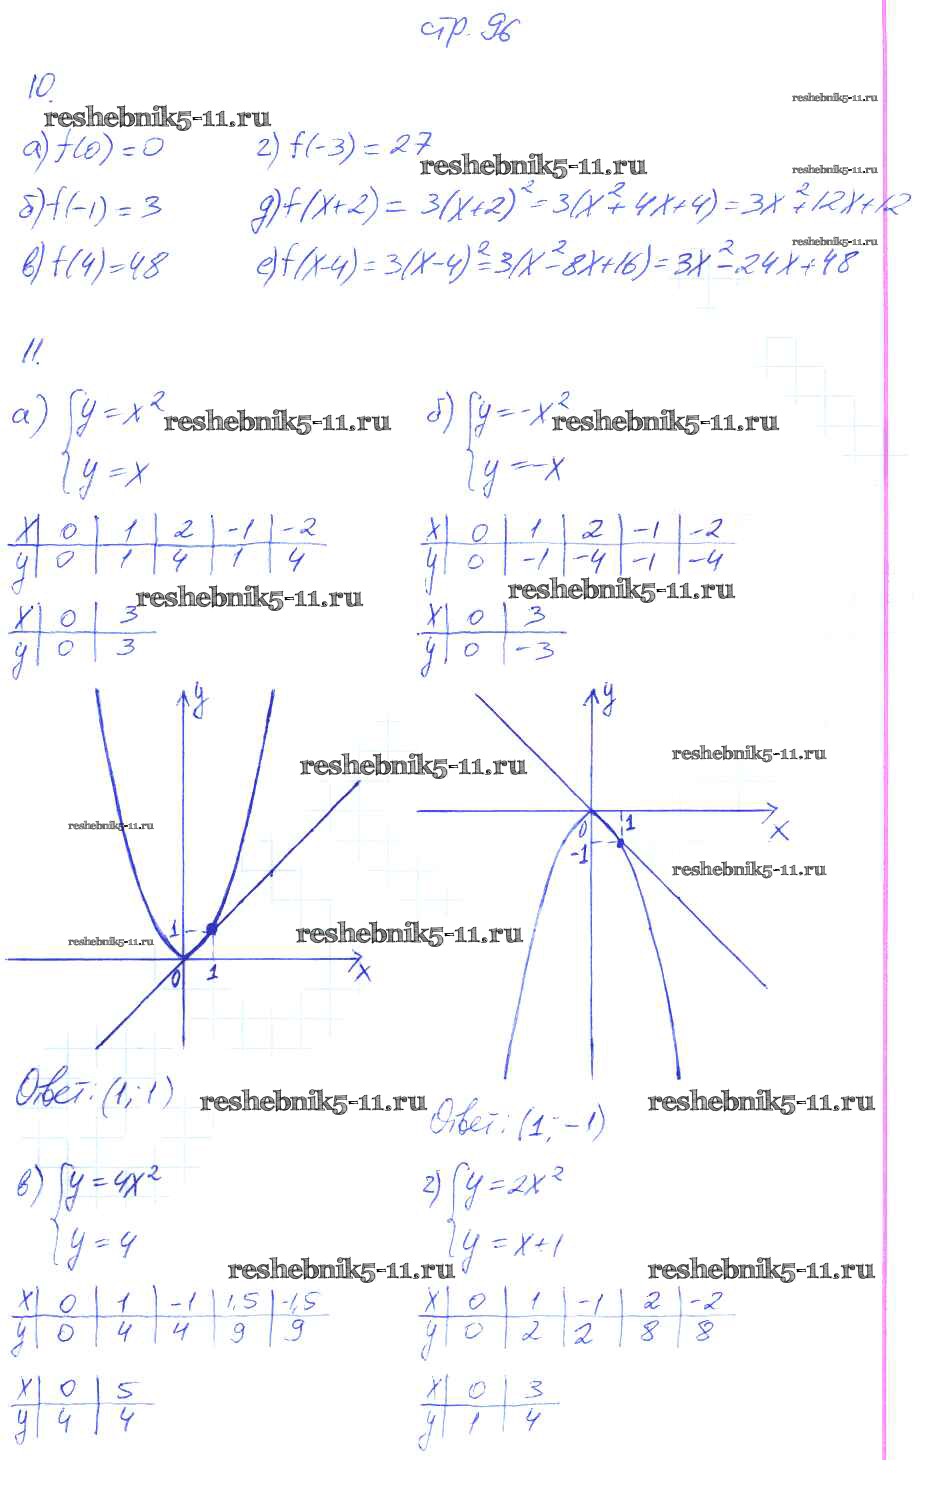 стр. 96
10.
reshebnik5-11.ru
reshebnik5-11.ru
а) f(0) = 0 г) f(-3) = 27
reshebnik5-11.ru
reshebnik5-11.ru
б) f(-1) = 3 д) f(x+2) = 3(x+2)² = 3(x²+4x+4) = 3x²+12x+12
reshebnik5-11.ru
в) f(4) = 48 е) f(x-4) = 3(x-4)² = 3(x²-8x+16) = 3x²-24x+48
11.
а) { y = x² reshebnik5-11.ru б) { y = -x² reshebnik5-11.ru
y = x y = -x
x | 0 | 1 | 2 | -1 | -2 x | 0 | 1 | 2 | -1 | -2
y | 0 | 1 | 4 | 1 | 4 y | 0 | -1 | -4 | -1 | -4
reshebnik5-11.ru reshebnik5-11.ru
x | 0 | 3 x | 0 | 3
y | 0 | 3 y | 0 | -3
y y
reshebnik5-11.ru reshebnik5-11.ru
reshebnik5-11.ru
0 1 x
-1
reshebnik5-11.ru
1 reshebnik5-11.ru
reshebnik5-11.ru
0 1 x
Ответ: (1; 1) reshebnik5-11.ru reshebnik5-11.ru
Ответ: (1; -1)
в) { y = 4x² г) { y = 2x²
y = 4 y = x+1
reshebnik5-11.ru reshebnik5-11.ru
x | 0 | 1 | -1 | 1,5 | -1,5 x | 0 | 1 | -1 | 2 | -2
y | 0 | 4 | 4 | 9 | 9 y | 0 | 2 | 2 | 8 | 8
x | 0 | 5 x | 0 | 3
y | 4 | 4 y | 1 | 4